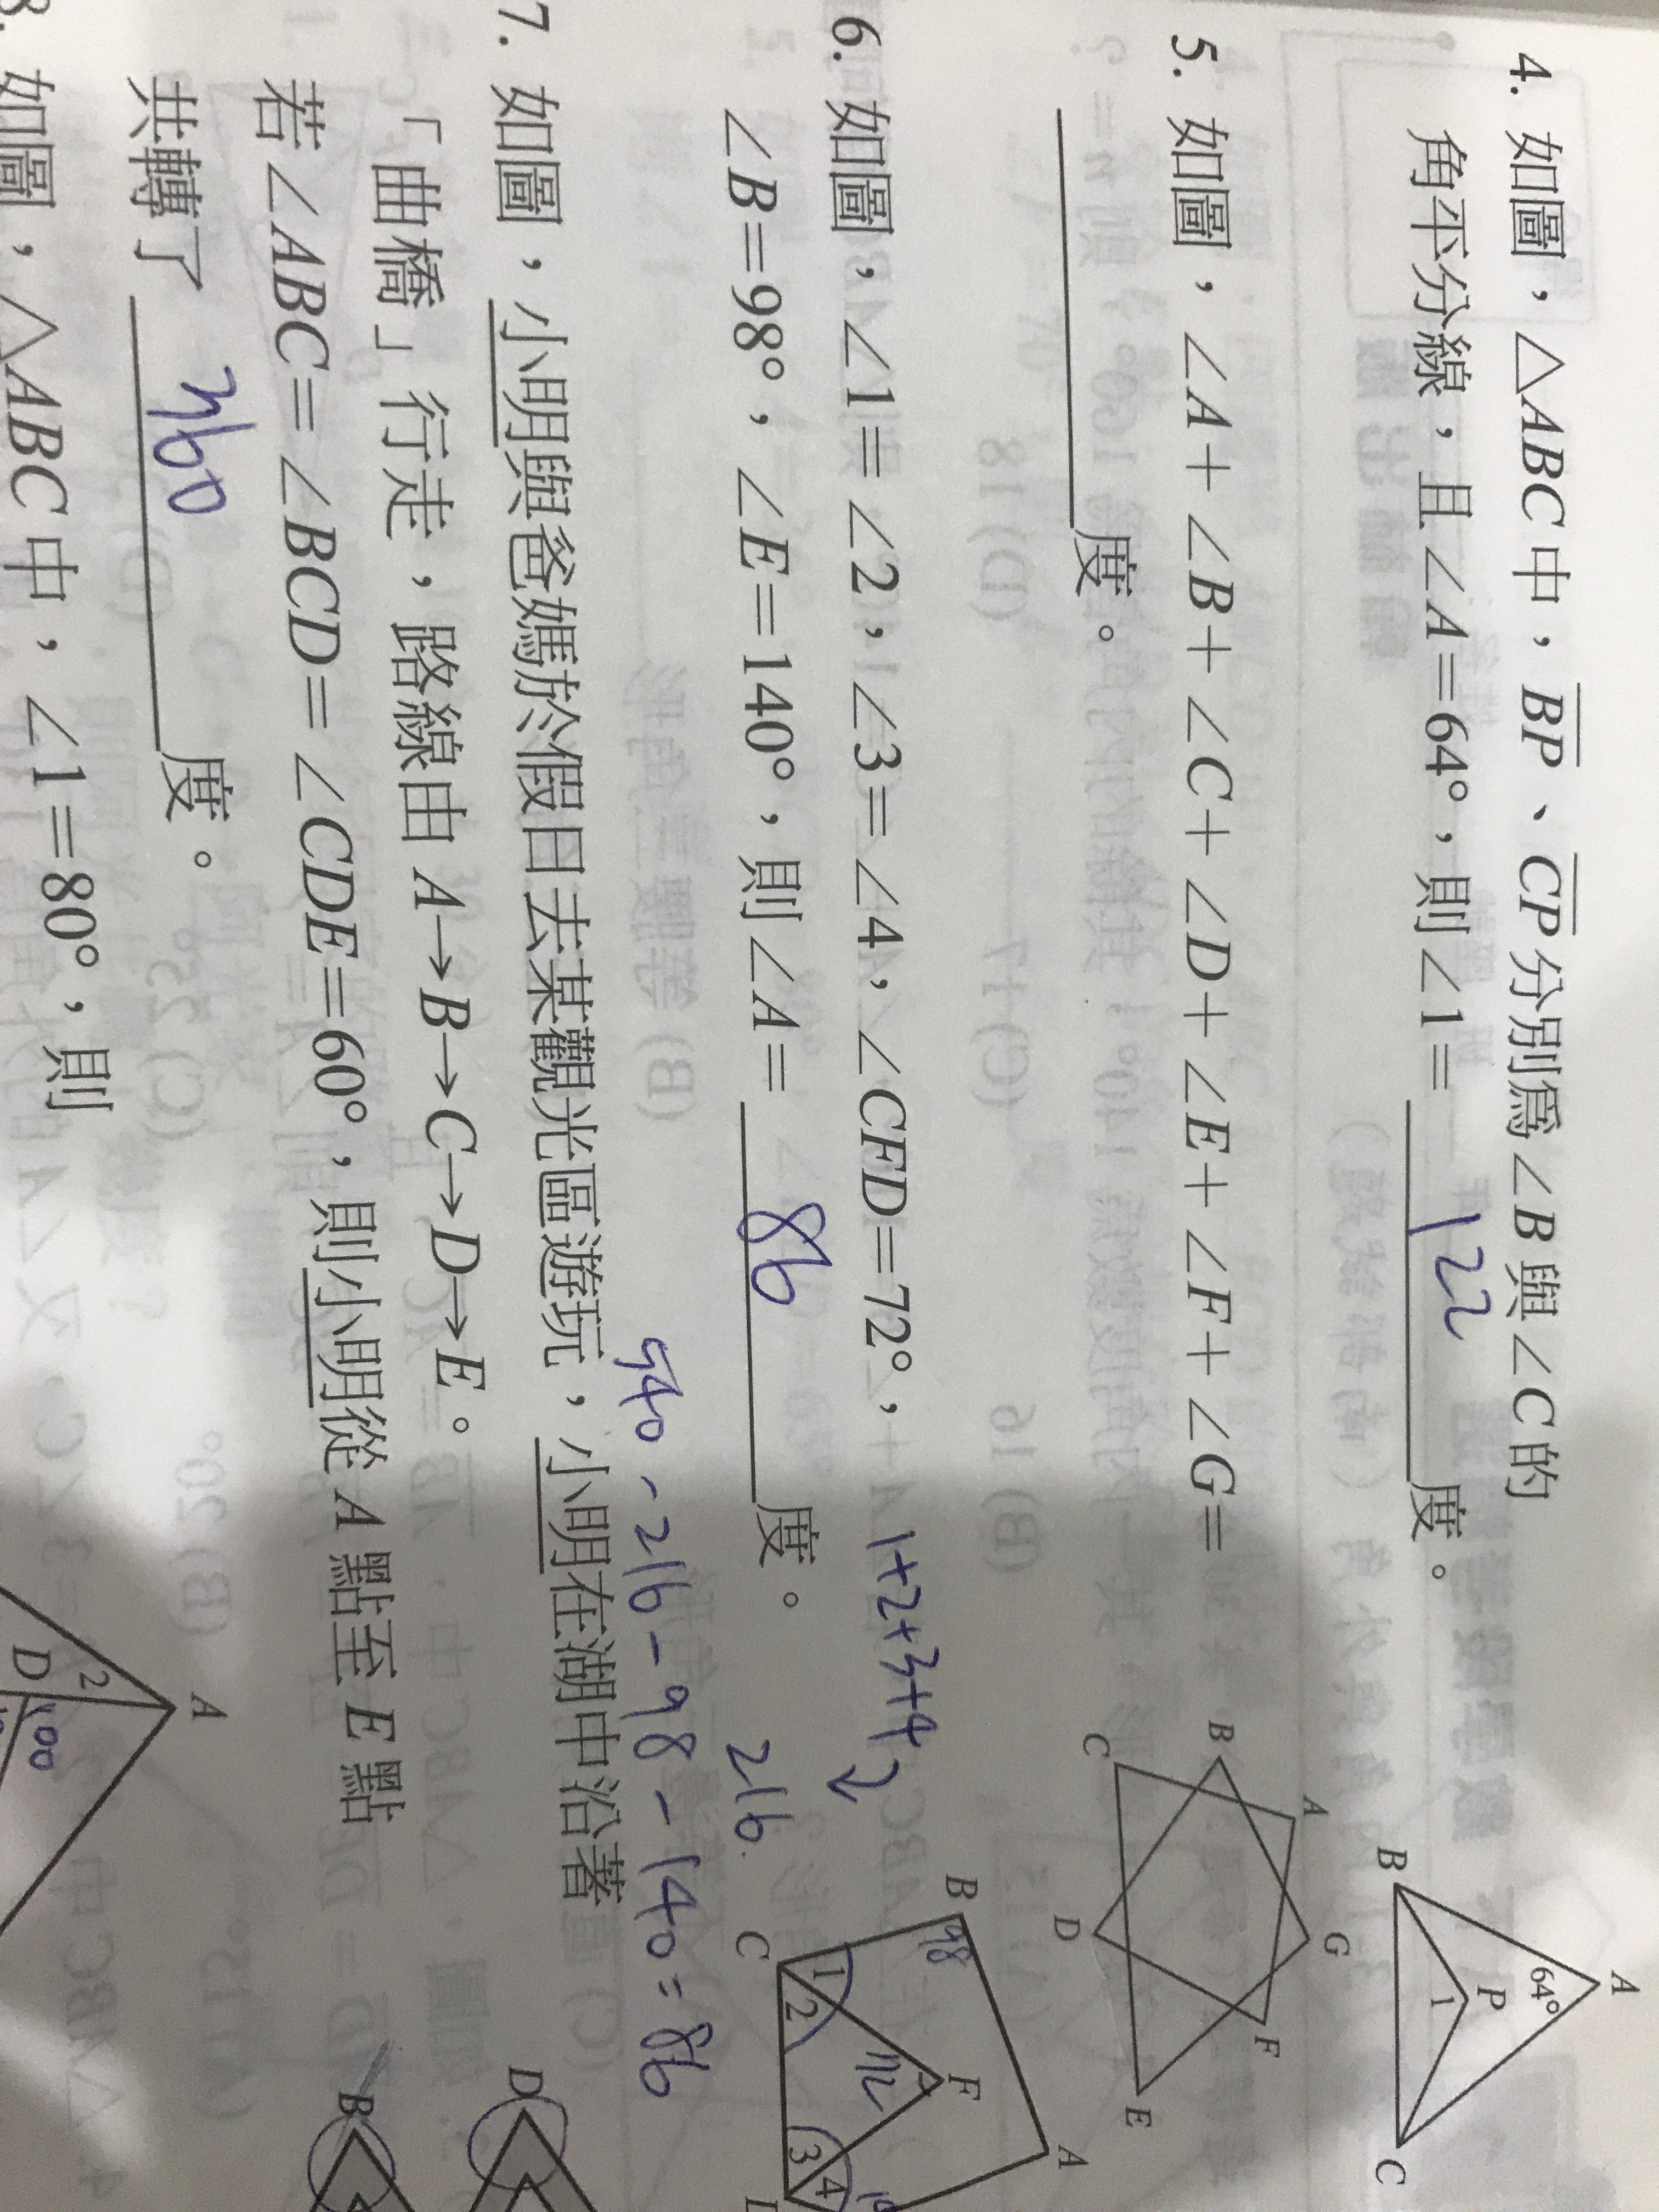 4. 如圖，△ABC中，BP、CP分別為∠B與∠C的
角平分線，且∠A=64°，則∠1= 122 度。
A
64°
P
1
B
C
5. 如圖，∠A+∠B+∠C+∠D+∠E+∠F+∠G=
度。
A
G
B
F
C
D
E
6. 如圖，∠1=∠2，∠3=∠4，∠CFD=72°，
1+2+3+4
∠B=98°，∠E=140°，則∠A= 86 度。
216
A
B
98
F
72
1
2
3
4
C
540-216-98-140=86
7. 如圖，小明與爸媽於假日去某觀光區遊玩，小明在湖中沿著
「曲橋」行走，路線由A→B→C→D→E。
若∠ABC=∠BCD=∠CDE=60°，則小明從A點至E點
共轉了 360 度。
D
B
8. 如圖，△ABC中，∠1=80°，則
A
2
D
100